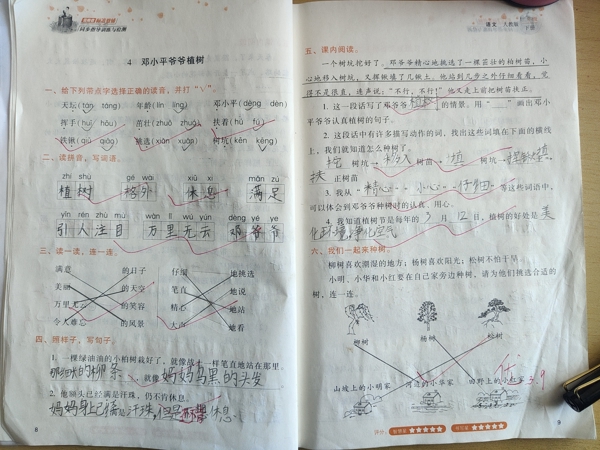 同步指导训练与检测
4 邓小平爷爷植树
一、给下列带点字选择正确的读音，并打“√”。
天坛(tán tāng) 年龄(lín líng) 邓小平(dèng dèn)
挥手(huī hūi) 茁壮(zhuó zhuō) 扶着(hú fú)
铁锹(qiū qiāo) 挑选(xuǎn xuān) 树坑(kēn kēng)
二、读拼音，写词语。
zhí shù gé wài xiū xi mǎn zú
植树 格外 休息 满足
yǐn rén zhù mù wàn lǐ wú yún dèng yé ye
引人注目 万里无云 邓爷爷
三、读一读，连一连。
满意 的日子 仔细 地挑选
美丽 的天空 笔直 地说
万里无云 的笑容 精心 地站
令人难忘 的风景 大声 地看
四、照样子，写句子。
1. 一棵绿油油的小柏树栽好了，就像战士一样笔直地站在那里。
的柳条 ，就像妈妈乌黑的头发
2. 他额头已经满是汗珠，仍不肯休息。
妈妈身上已满是汗珠，但是 休息。
8
语文
五、课内阅读。
一个树坑挖好了。邓爷爷精心地挑选了一棵茁壮的柏树苗，小
心地移入树坑，又挥锹填了几锹土。他站到几步之外仔细看看，觉
得不很直，连声说：“不行，不行！”他又走上前把树苗扶正。
1. 这一段话写了邓爷爷植树的情景。用“___”画出邓小
平爷爷认真植树的句子。
2. 这段话中有许多描写动作的词，找出这些词填在下面的横线
上，我们就知道怎么种树了。
挖树坑 移入树苗 填树坑
扶正树苗
3. 我从“精心”“小心”“仔细”等这些词语中，
可以体会到邓爷爷种树时的认真、用心。
4. 我知道植树节是每年的3月12日，植树的好处是美
化环境，净化空气
六、我们一起来种树。
柳树喜欢潮湿的地方；杨树喜欢阳光；松树不怕干旱。
小明、小华和小红要在自己家旁边种树，请为他们挑选合适的
树，连一连。
柳树 杨树 松树
山坡上的小明家 河边的小华家 田野上的小红家
3.9
9